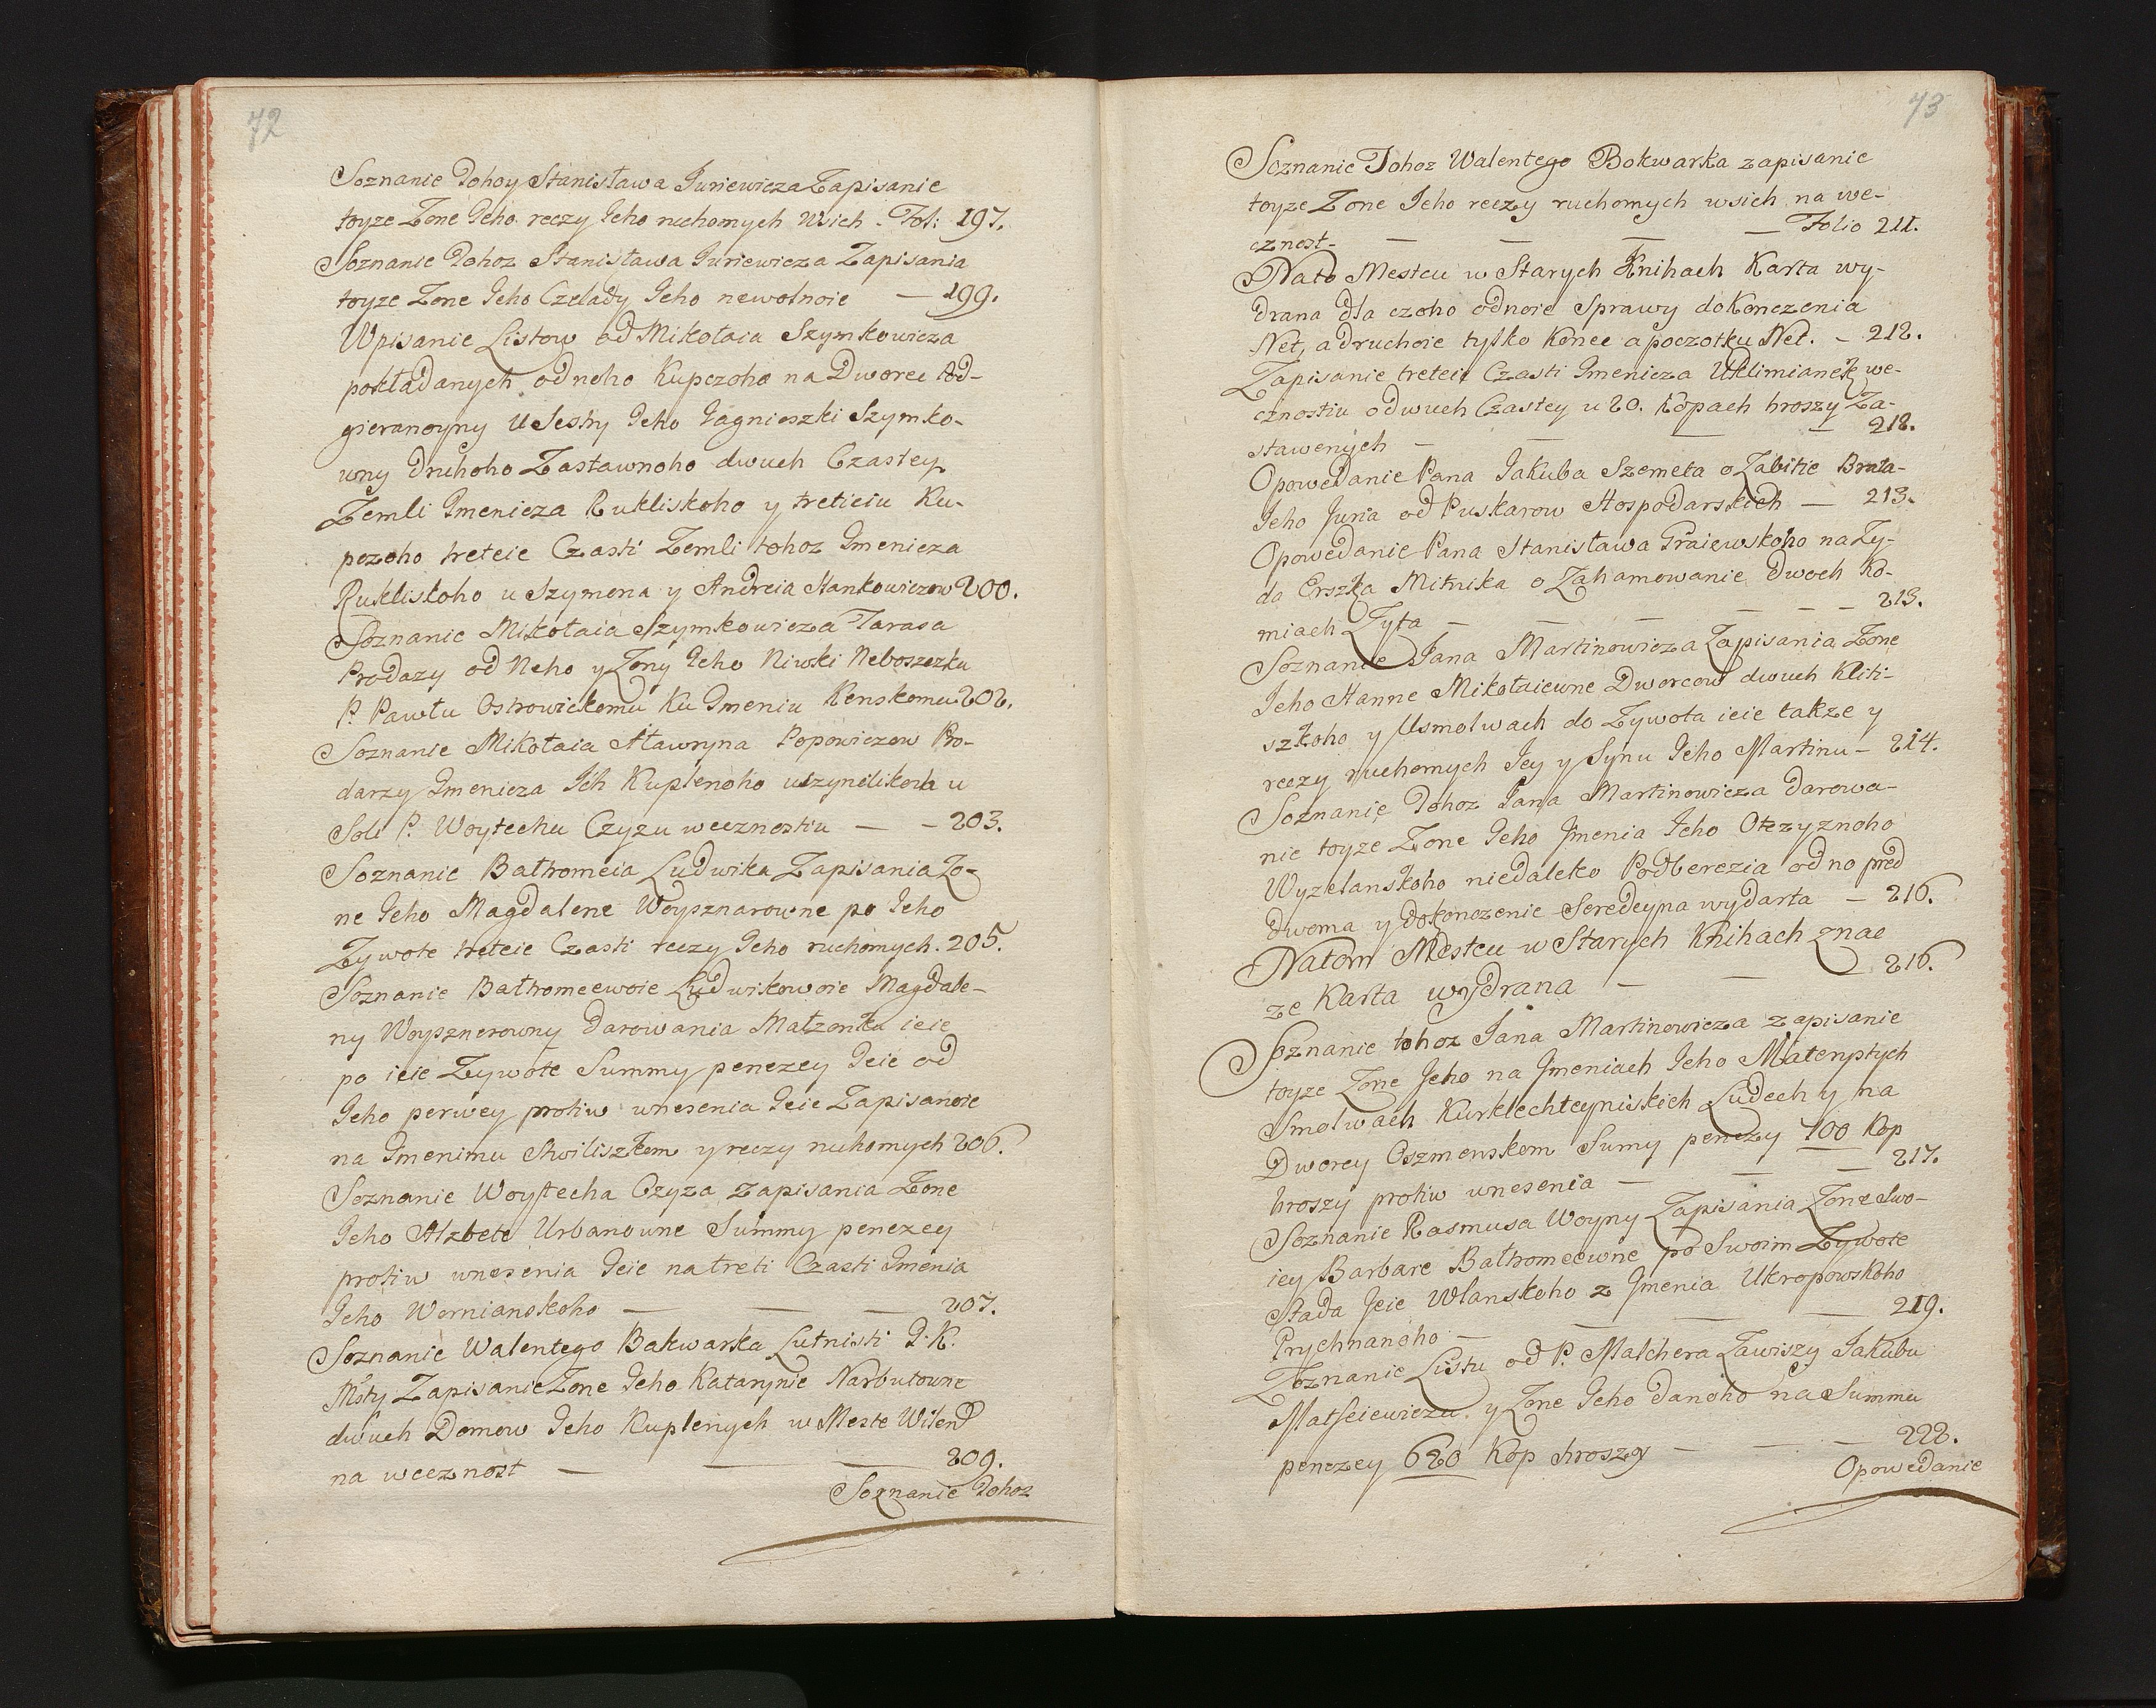 72
Soznanie Tohoy Stanisława Juriewicza Zapisanie
toyze Zone Jeho reczy Jeho ruchomych wsich - Fol: 197.
Soznanie Tohoz Stanisława Juriewicza Zapisania
toyze Zone Jeho Czelady Jeho newolnoie — 199.
Wpisanie Listow od Mikołaia Szymkowicza
pokładanych odneho Kupczoho na Dworec Pod-
gieranoyny U Sestry Jeho Jagnieszki Szymko-
wny druhoho Zastawnoho dwuch Czastey
Zemli Imenicza Rukliskoho y tretieiu Ku-
pczoho treteie Czasti Zemli tohoz Imenicza
Rukliskoho u Szymona y Andreia Stankowiczow 200.
Soznanie Mikołaia Szymkowicza Tarasa
Prodazy od Neho y Zony Jeho Niwki Neboszczku
P. Pawłu Ostrowickomu Ku Imeniu Kenskomu 202.
Soznanie Mikołaia Hawryna Popowiczow Pro-
darzy Imenicza Jch Kuplenoho uszynelikoch u
Soli P. Woytechu Czyzu wecznostiu — - 203.
Soznanie Bałtromeia Ludwika Zapisania Zo-
ne Jeho Magdalene Woysznarowne po Jeho
Zywote treteie Czasti reczy Jeho ruchomych. 205.
Soznanie Bałtromeewoie Ludwikowoie Magdale-
ny Woysznerowny darowania Małzonku ieie
po ieie Zywote Summy penezey Jeie od
Jeho perwey protiw wnesenia Jeie Zapisanoie
na Imenimu Swiliszkom y reczy ruchomych 206.
Soznanie Woytecha Czyza Zapisania Zone
Jeho Alzbete Urbanowne Summy penezey
protiw wnesenia Jeie na treti Czasti Imenia
Jeho Wornianskoho — — — 207.
Soznanie Walentego Bakwarka Lutnisti J. K.
Msty Zapisanie Zone Jeho Katarynie Narbutowne
dwuch Domow Jeho Kuplenych w Meste Wilend
na wecznost — — — 209.
Soznanie Tohoz
73
Soznanie Tohoz Walentego Bokwarka zapisanie
toyze Zone Jeho reczy ruchomych wsich na we-
cznost - — — — — Folio 211.
Nato Mestcu w Starych Knihach Karta wy-
drana dla czoho odnoie Sprawy dokonczenia
Net, a druchoie tylko Konec a poczotku Net. - 212.
Zapisanie treteie Czasti Imenicza Uklimianek we-
cznostiu odwuch Czastey u 20. Kopach hroszy Za-
stawenych - — — — 212.
Opowedanie Pana Jakuba Szemeta o Zabitie Brata-
Jeho Juria od Puskarow Hospodarskich — 213.
Opowedanie Pana Stanisława Graiewskoho na Zy-
da Erszka Mitnika o Zahamowanie dwoch Ko-
miach Zyta — — — — - 213.
Soznanie Jana Martinowicza Zapisania Zone
Jeho Hanne Mikołaiewne Dworcow dwuch Kliti-
szkoho y Usmolwach do Zywota ieie takze y
reczy ruchomych Jey y Synu Jeho Martinu - 214.
Soznanie Tohoz Jana Martinowicza darowa-
nie toyze Zone Jeho Imenia Jeho Otczyznoho
Wyzelanskoho niedaleko Podberezia odno pred
dwoma y dokonczenie Seredeyna wydarta - 216.
Natom Mestcu w Starych Knihach znac
ze Karta wydrana - — 216.
Soznanie tohoz Jana Martinowicza zapisanie
toyze Zone Jeho na Imeniach Jeho Materystych
Smolwach Kurklechteyniskich Ludech y na
Dworcy Oszmenskom Sumy penezy 700 Kop
hroszy protiw wnesenia — — — 217.
Soznanie Rasmusa Woyny Zapisania Zone Swo-
iey Barbare Bałtromeewne po Swoim Zywote
Stada Jeie Wlanskoho z Imenia Ukropowskoho
Prychnanoho — — — — 219.
Zoznanie Listu od P. Malchera Zawiszy Jakubu
Matfeiewiczu y Zone Jeho danoho na Summu
penezey 620 Kop hroszy — — - 222.
Opowedanie